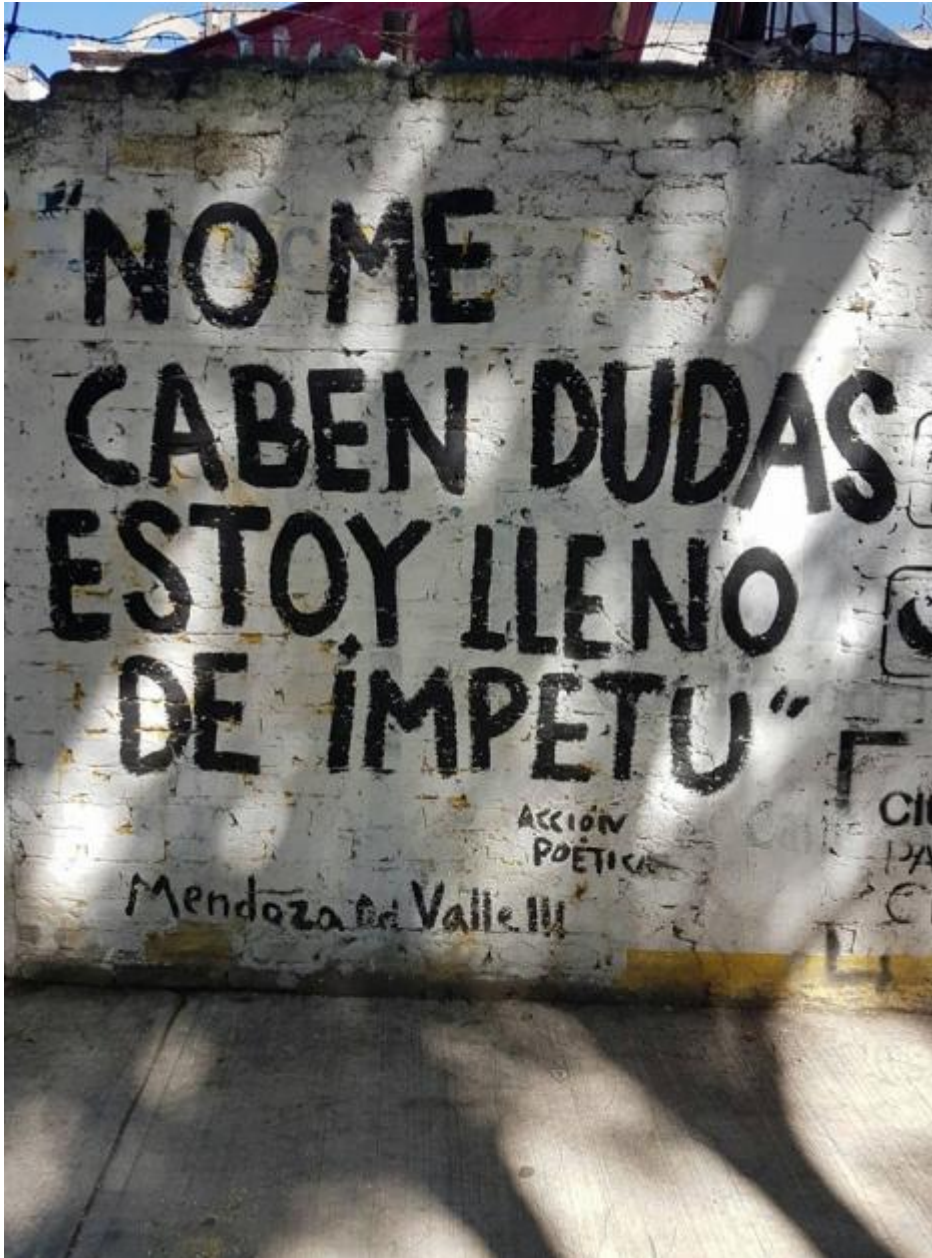 "NO ME
CABEN DUDAS
ESTOY LLENO
DE ÍMPETU"
ACCIÓN
POÉTICA
Mendoza Del Valle!!!